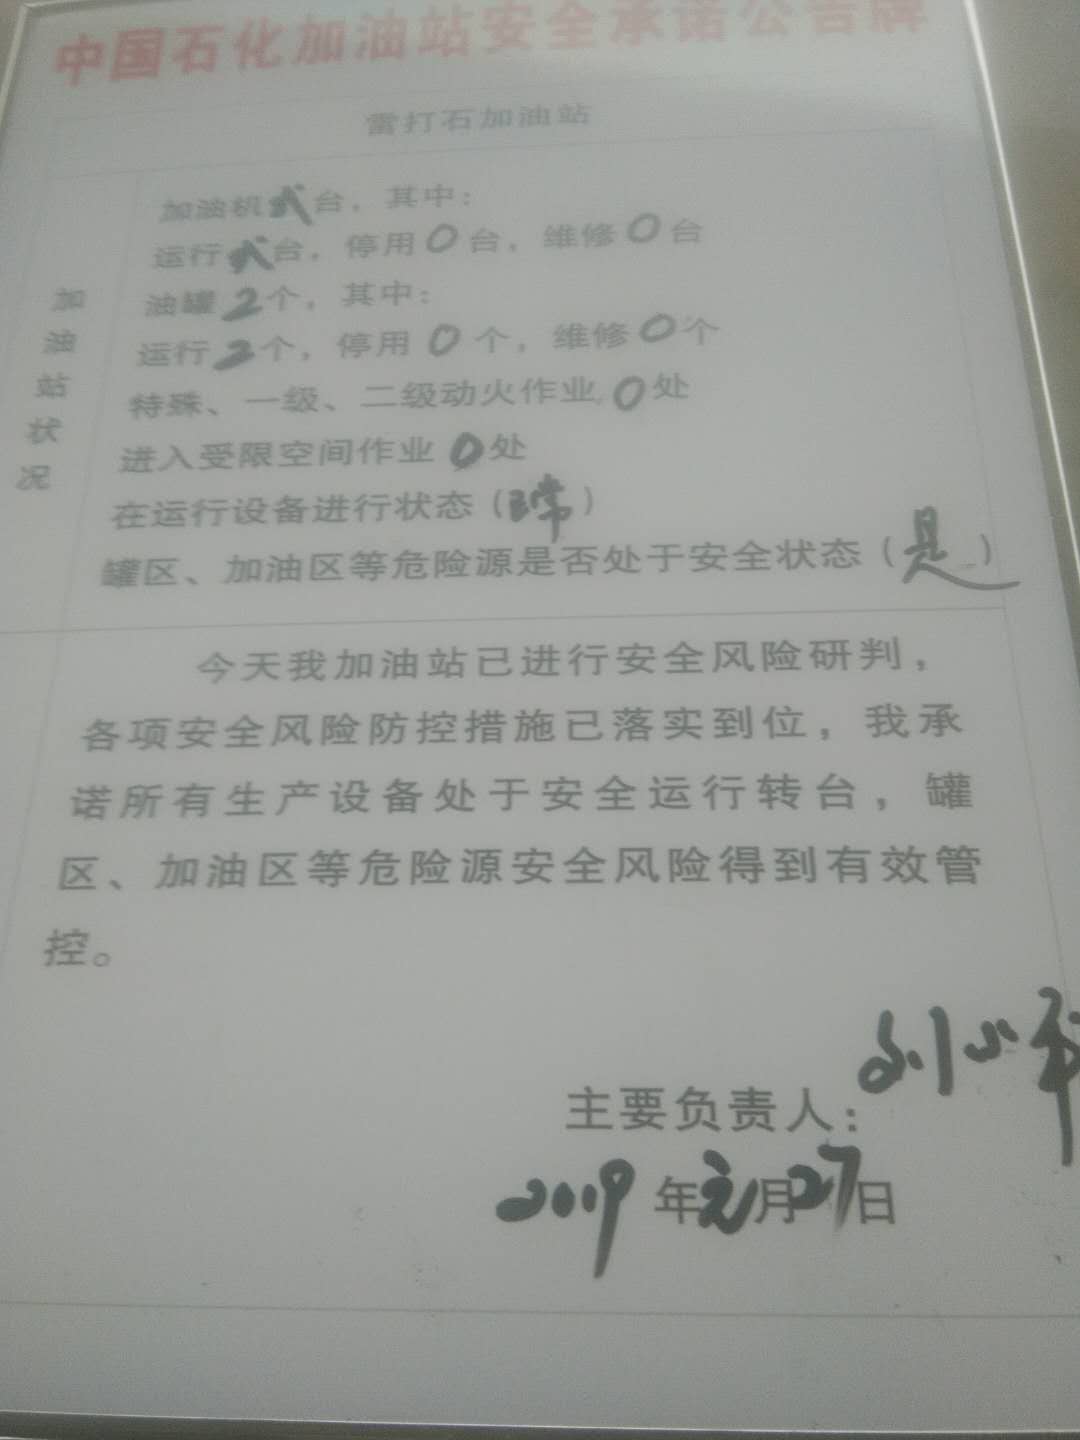 中国石化加油站安全承诺公告牌
雷打石加油站
加油站状况
加油机弍台，其中：
运行弍台，停用0台，维修0台
油罐2个，其中：
运行2个，停用0个，维修0个
特殊、一级、二级动火作业0处
进入受限空间作业0处
在运行设备进行状态（正常）
罐区、加油区等危险源是否处于安全状态（是）
今天我加油站已进行安全风险研判，
各项安全风险防控措施已落实到位，我承
诺所有生产设备处于安全运行转台，罐
区、加油区等危险源安全风险得到有效管
控。
主要负责人：刘小
2019年元月27日